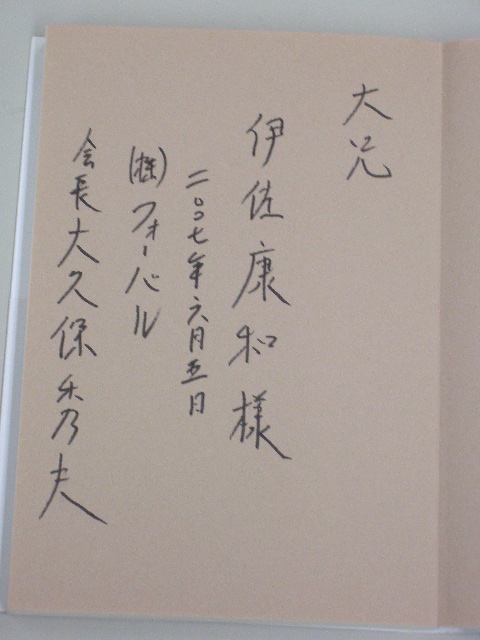 大兄
伊佐康和様
二〇〇七年六月五日
(株)フォーバル
会長大久保秀夫